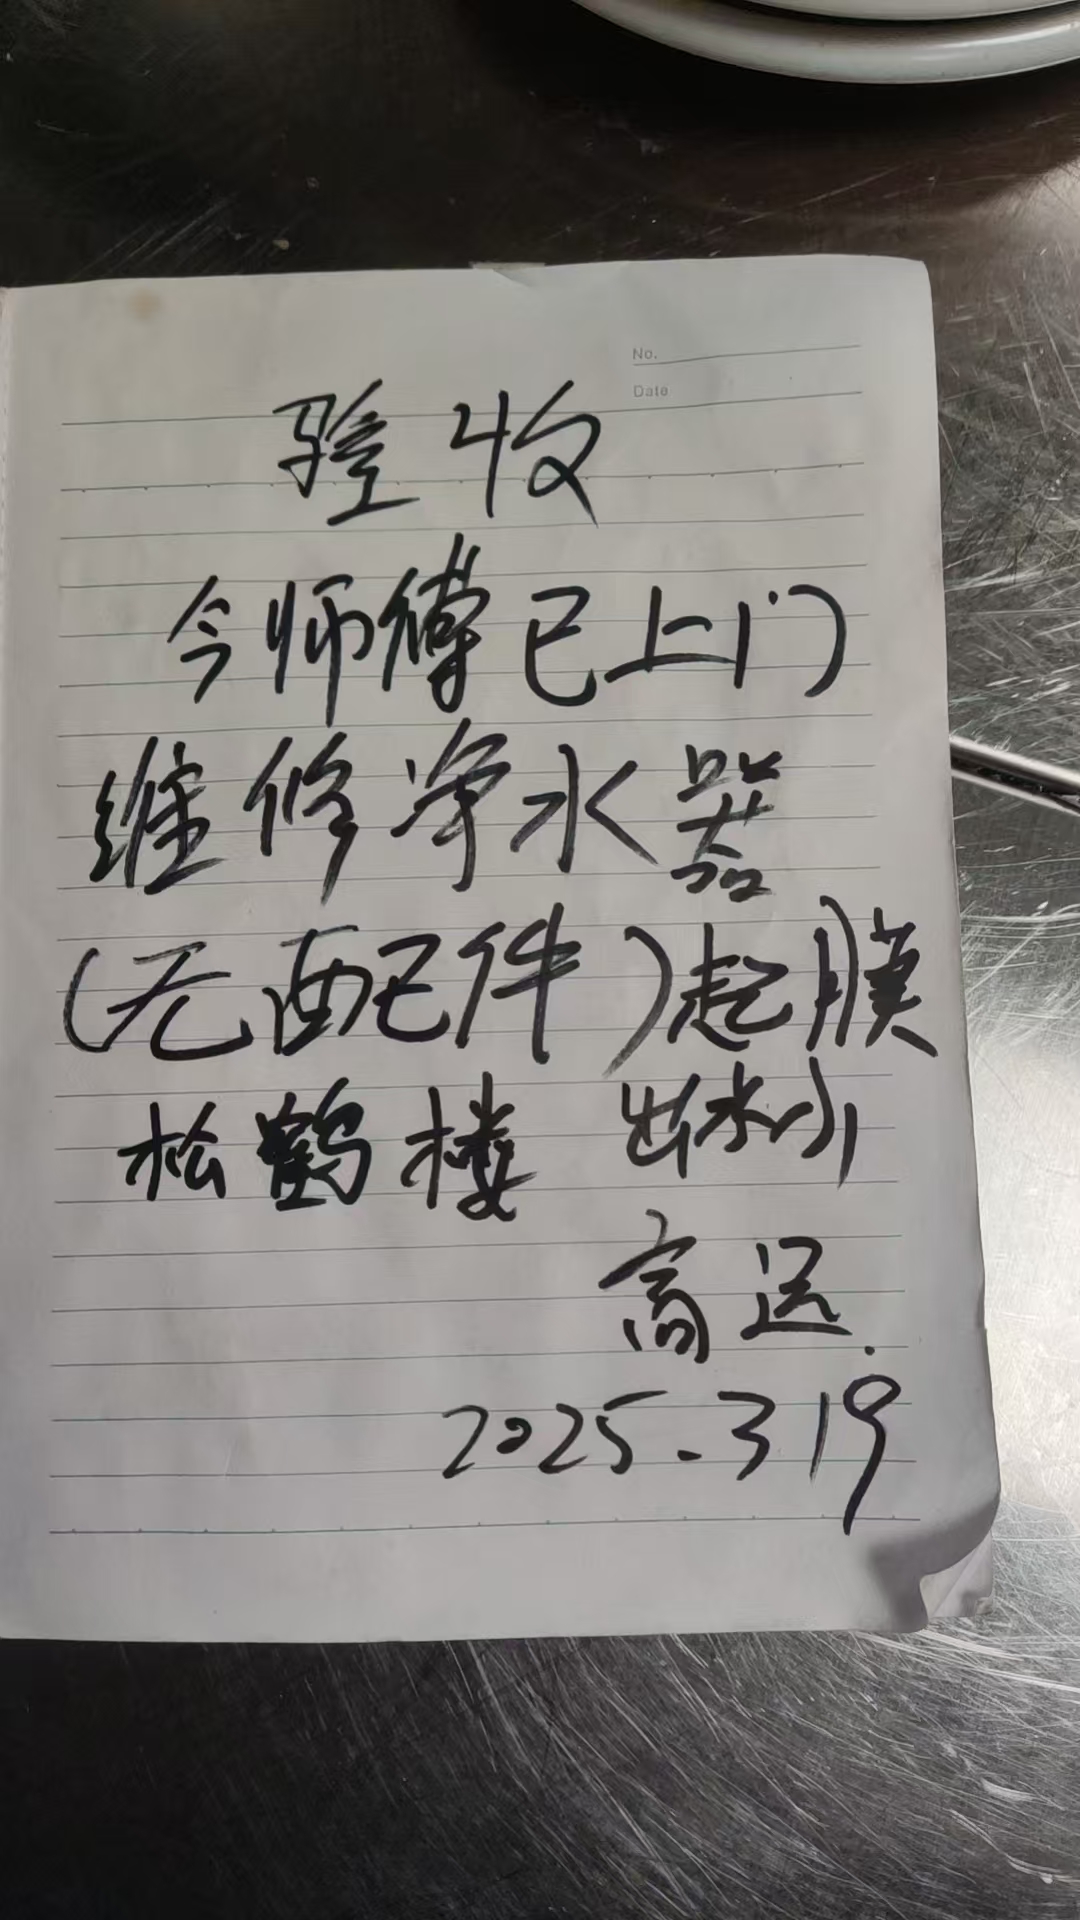 No.
Date
验收
今师傅已上门
维修净水器
(无配件)起膜
松鹤楼 出水小
高远.
2025.3 19